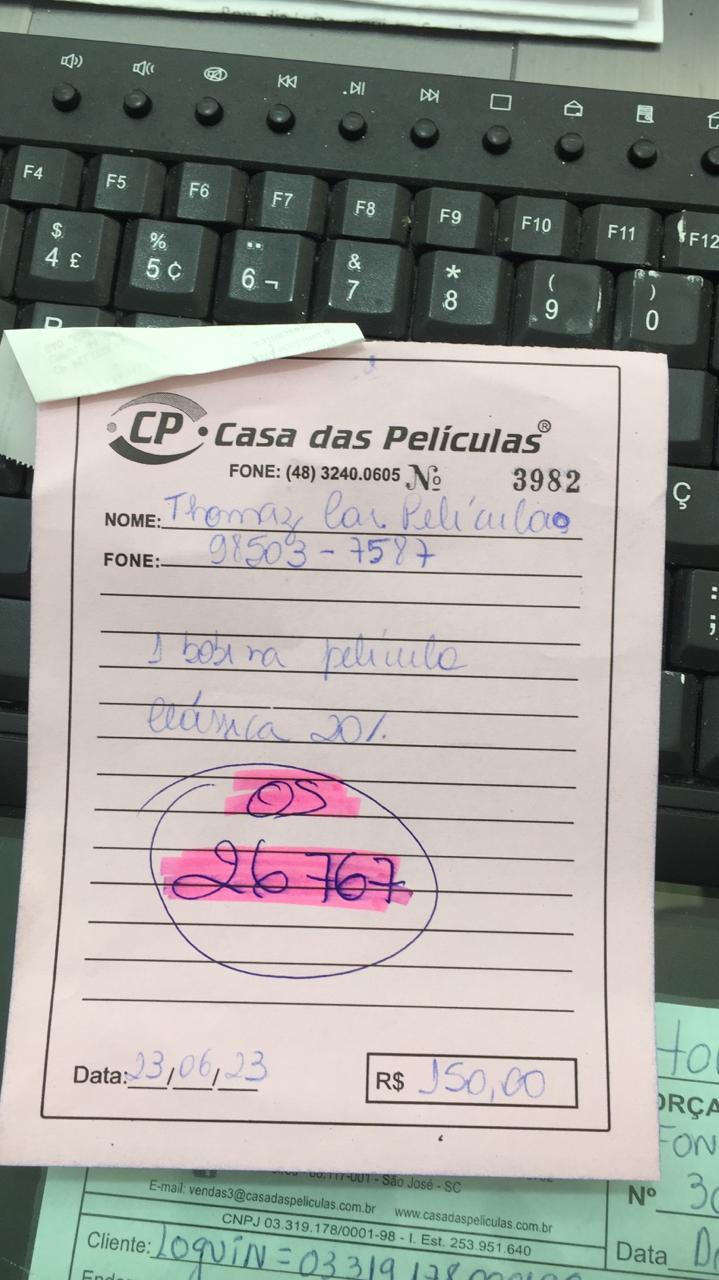 F4 F5 F6 F7 F8 F9 F10 F11 F12
$ % ¨ & * ( )
4 £ 5 ¢ 6 ¬ 7 8 9 0
CP Casa das Películas®
FONE: (48) 3240.0605 Nº 3982
NOME: Thomaz Car Películas
FONE: 98503-7587
Ç
1 bobina película
Clássica 20%
OS
26767
Data: 23/06/23 R$ 150,00
ORÇA
FON
- São José - SC
E-mail: vendas3@casadaspeliculas.com.br www.casadaspeliculas.com.br
Nº 30
CNPJ 03.319.178/0001-98 - I. Est. 253.951.640
Cliente: LOGUIN = 03319178
Data